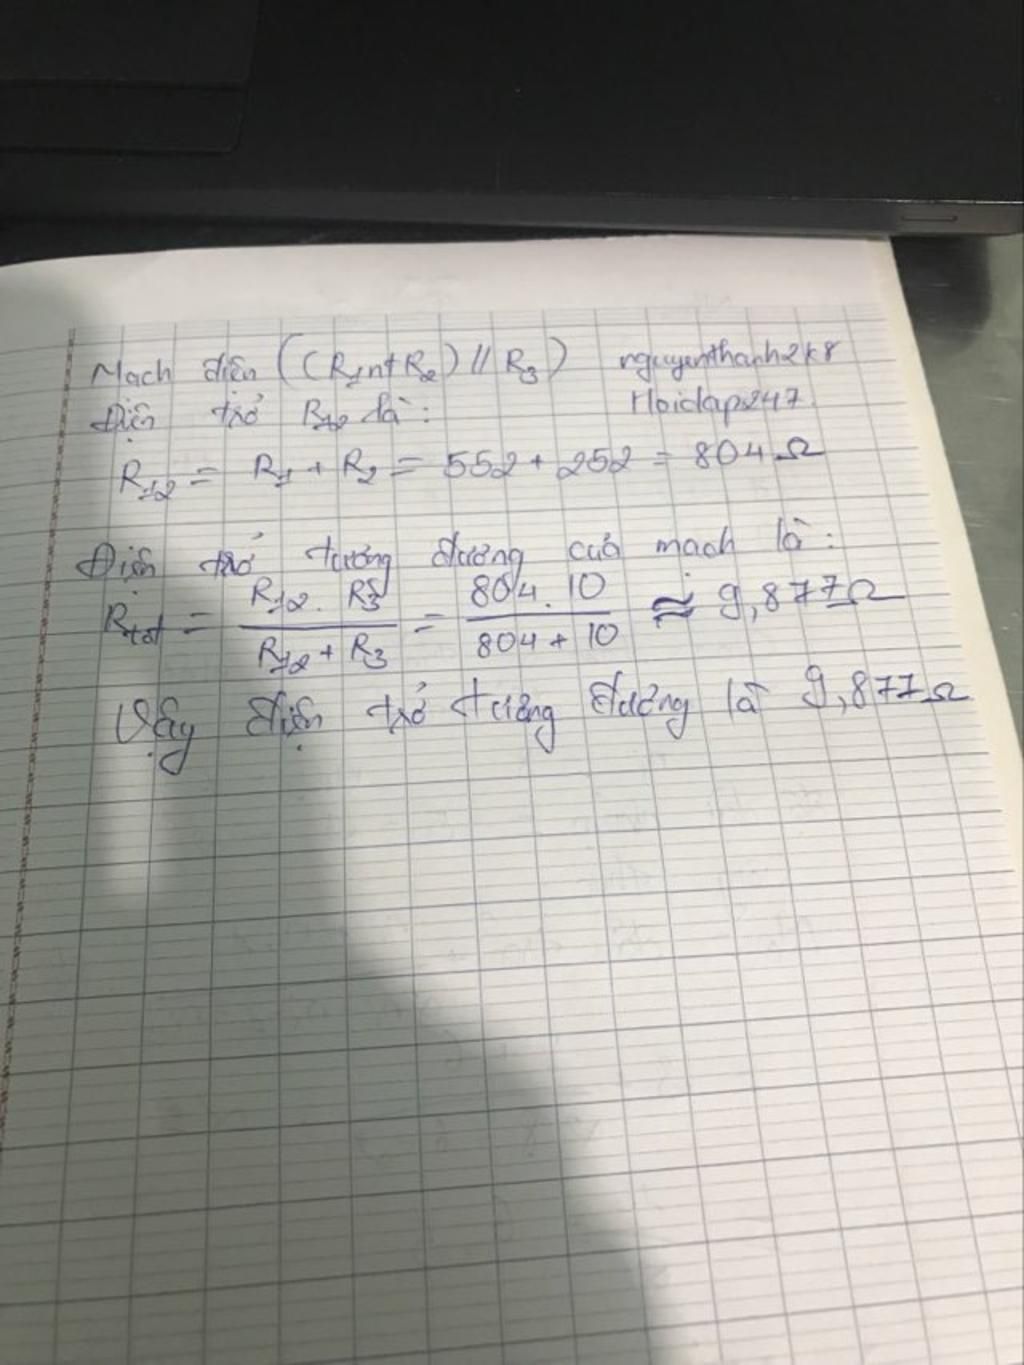 Mạch điện ((R1ntR2) // R3) nguyenthanh2k8
Điện trở R12 là: Hoidap247.
R12 = R1 + R2 = 552 + 252 = 804 Ω
Điện trở tương đương của mạch là:
Rtđ = R12 . R3 / R12 + R3 = 804 . 10 / 804 + 10 ≈ 9,877Ω
Vậy điện trở tương đương là 9,877Ω